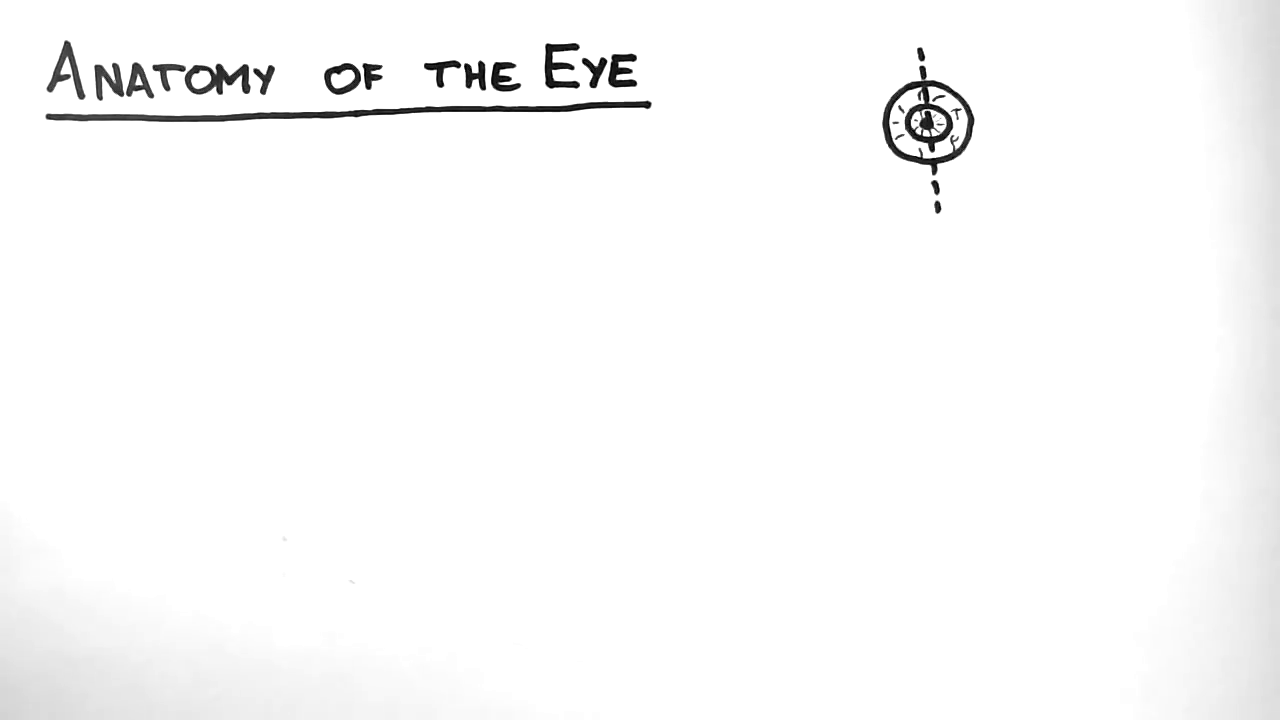 ANATOMY OF THE EYE